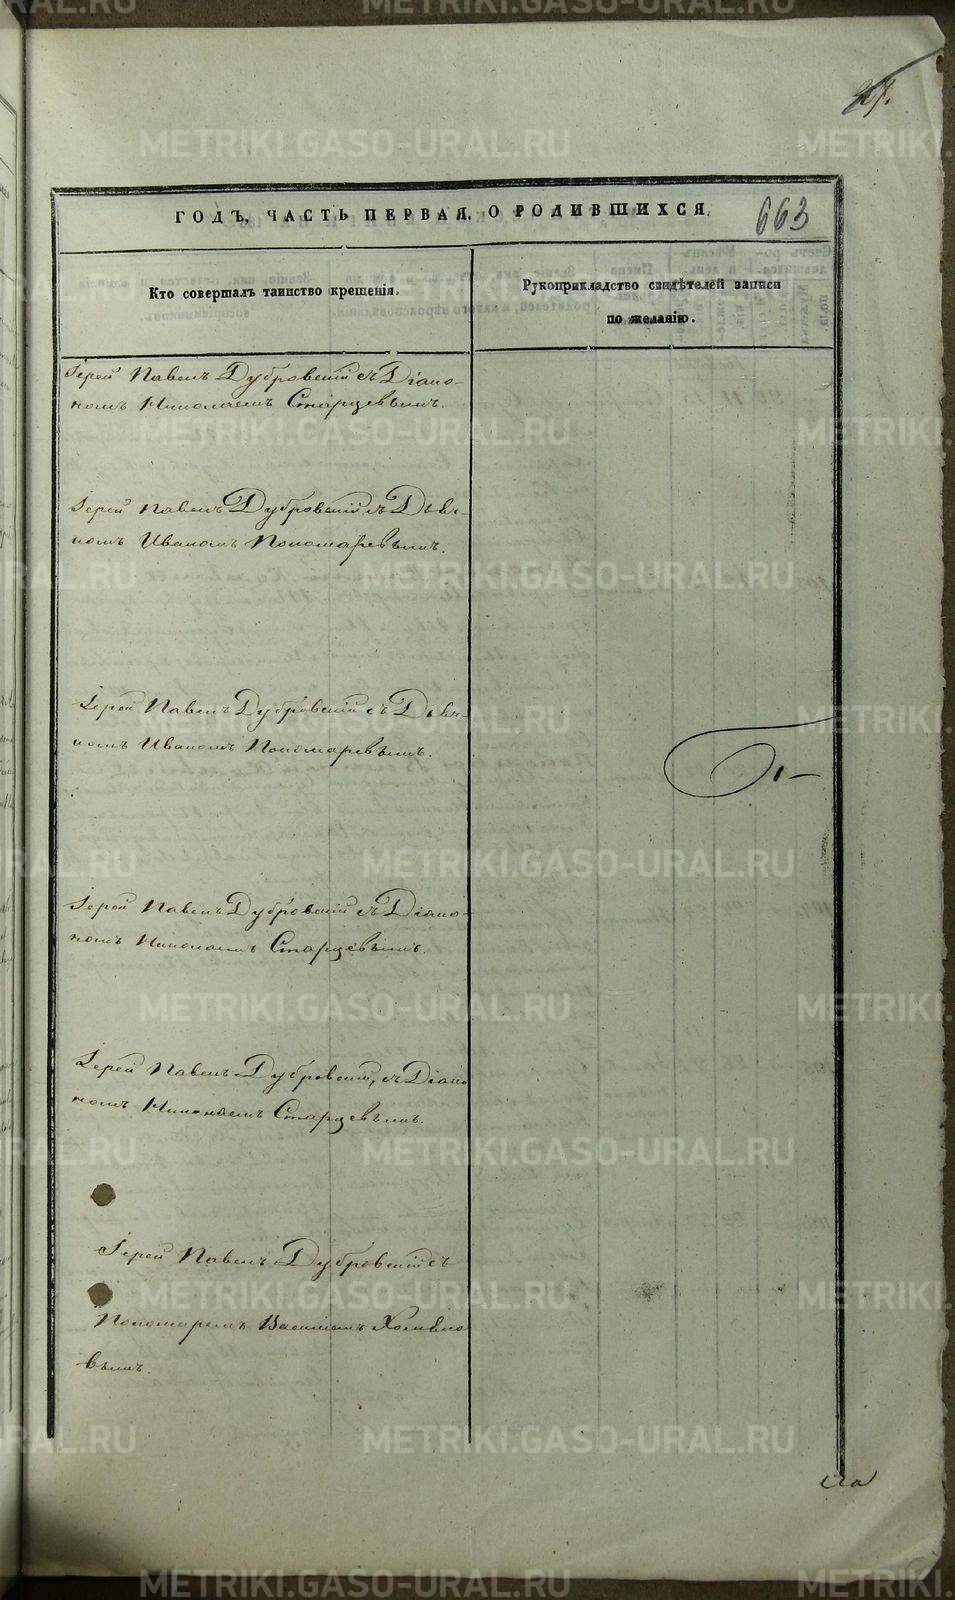 27.
ГОДЪ, ЧАСТЬ ПЕРВАЯ, О РОДИВШИХСЯ.
663
Кто совершалъ таинство крещенія.
Рукоприкладство свидѣтелей записи
по желанію.
Іерей Павелъ Дубровскій съ Діако-
номъ Николаемъ Старцевымъ.
Іерей Павелъ Дубровскій съ Дьяч-
комъ Иваномъ Пономаревымъ.
Іерей Павелъ Дубровскій съ Дьяч-
комъ Иваномъ Пономаревымъ.
Іерей Павелъ Дубровскій съ Діако-
номъ Николаемъ Старцевымъ.
Іерей Павелъ Дубровскій, съ Діако
номъ Николаемъ Старцевымъ.
Іерей Павелъ Дубровскій съ
Пономаремъ Василіемъ
вымъ.
METRIKI.GASO-URAL.RU